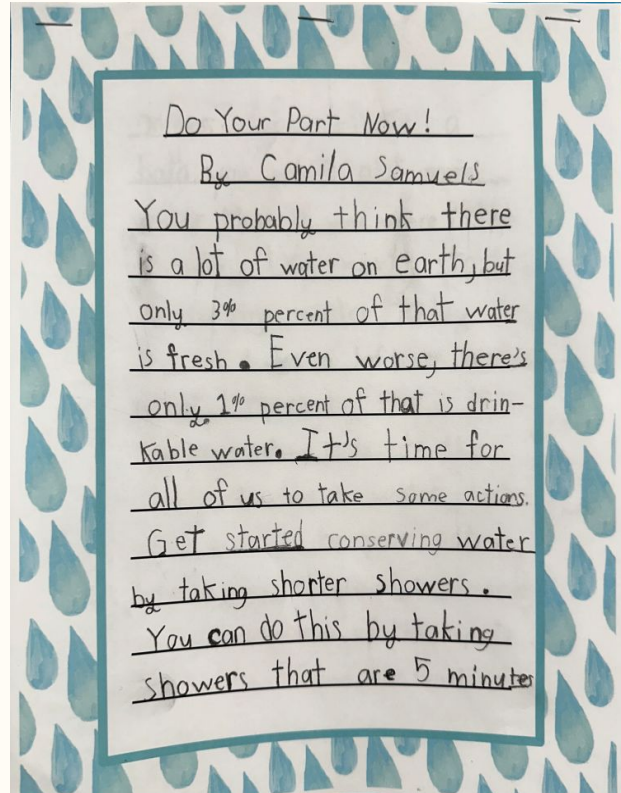 Do Your Part Now!
By Camila Samuels
You probably think there
is a lot of water on earth, but
only 3% percent of that water
is fresh. Even worse, there's
only 1% percent of that is drin-
kable water. It's time for
all of us to take some actions.
Get started conserving water
by taking shorter showers.
You can do this by taking
showers that are 5 minutes